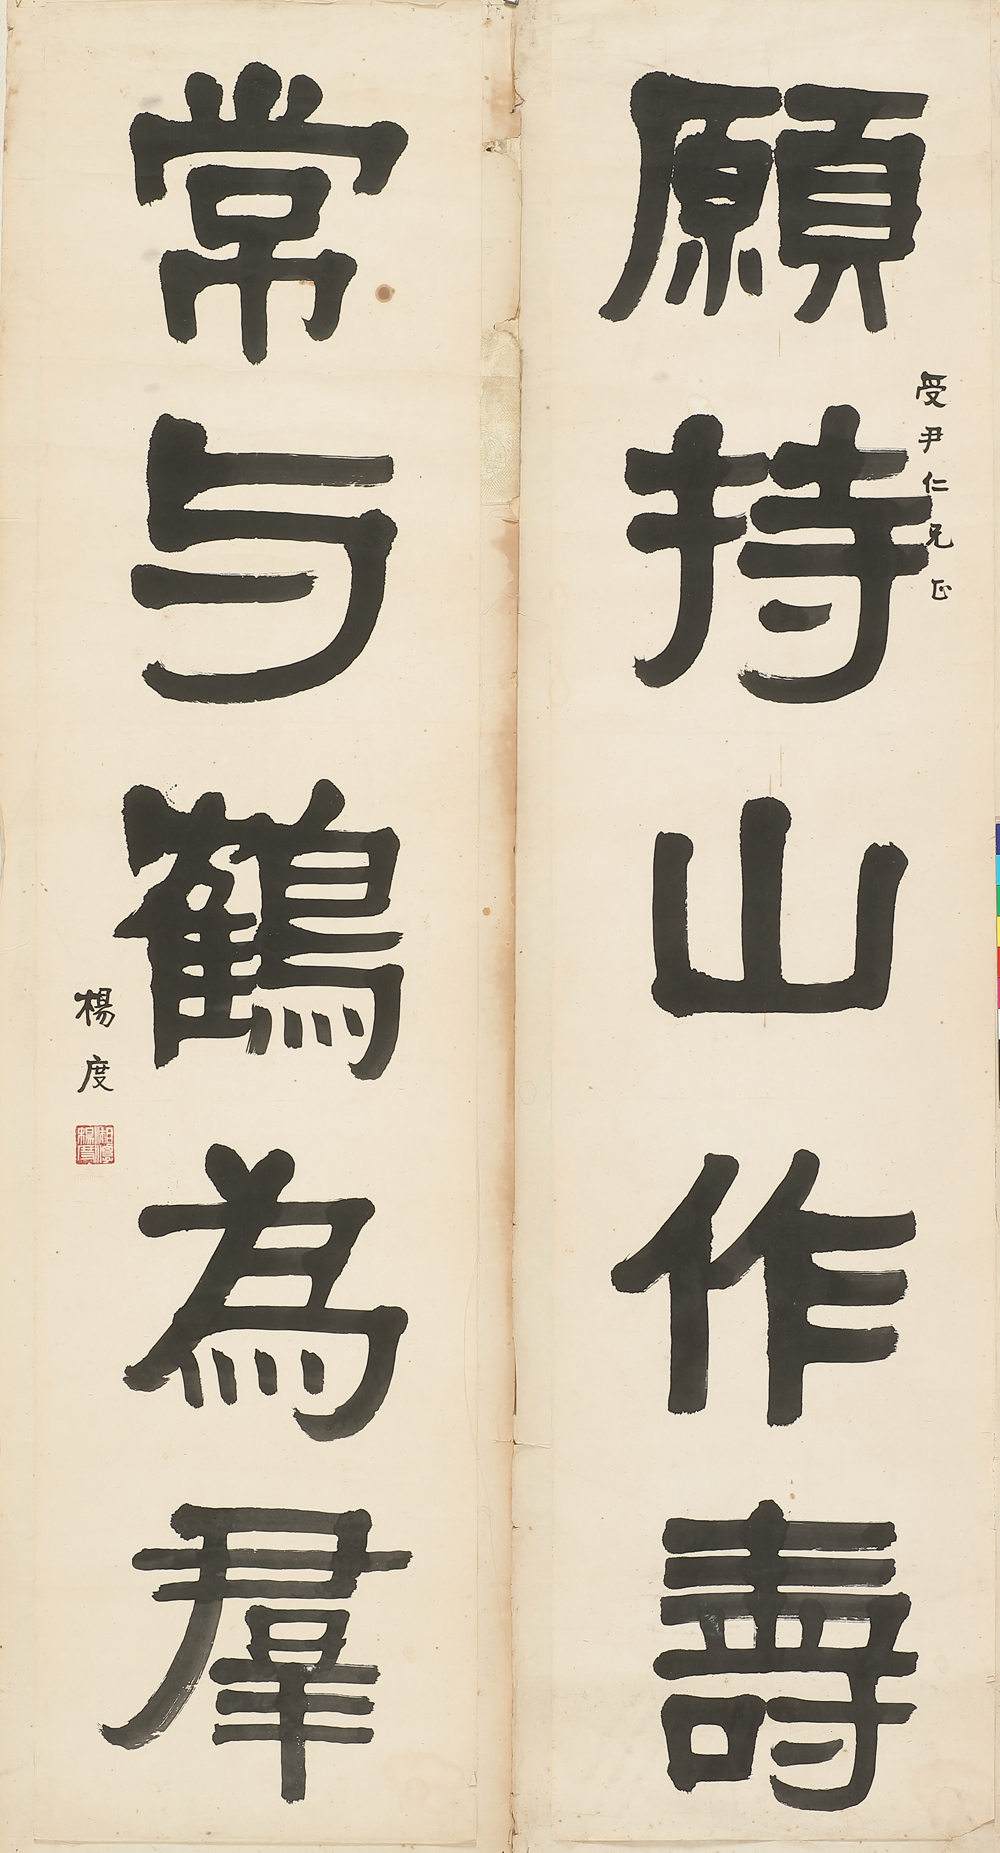 願持山作壽
受尹仁兄正
常与鶴為羣
楊度
湘潭楊度